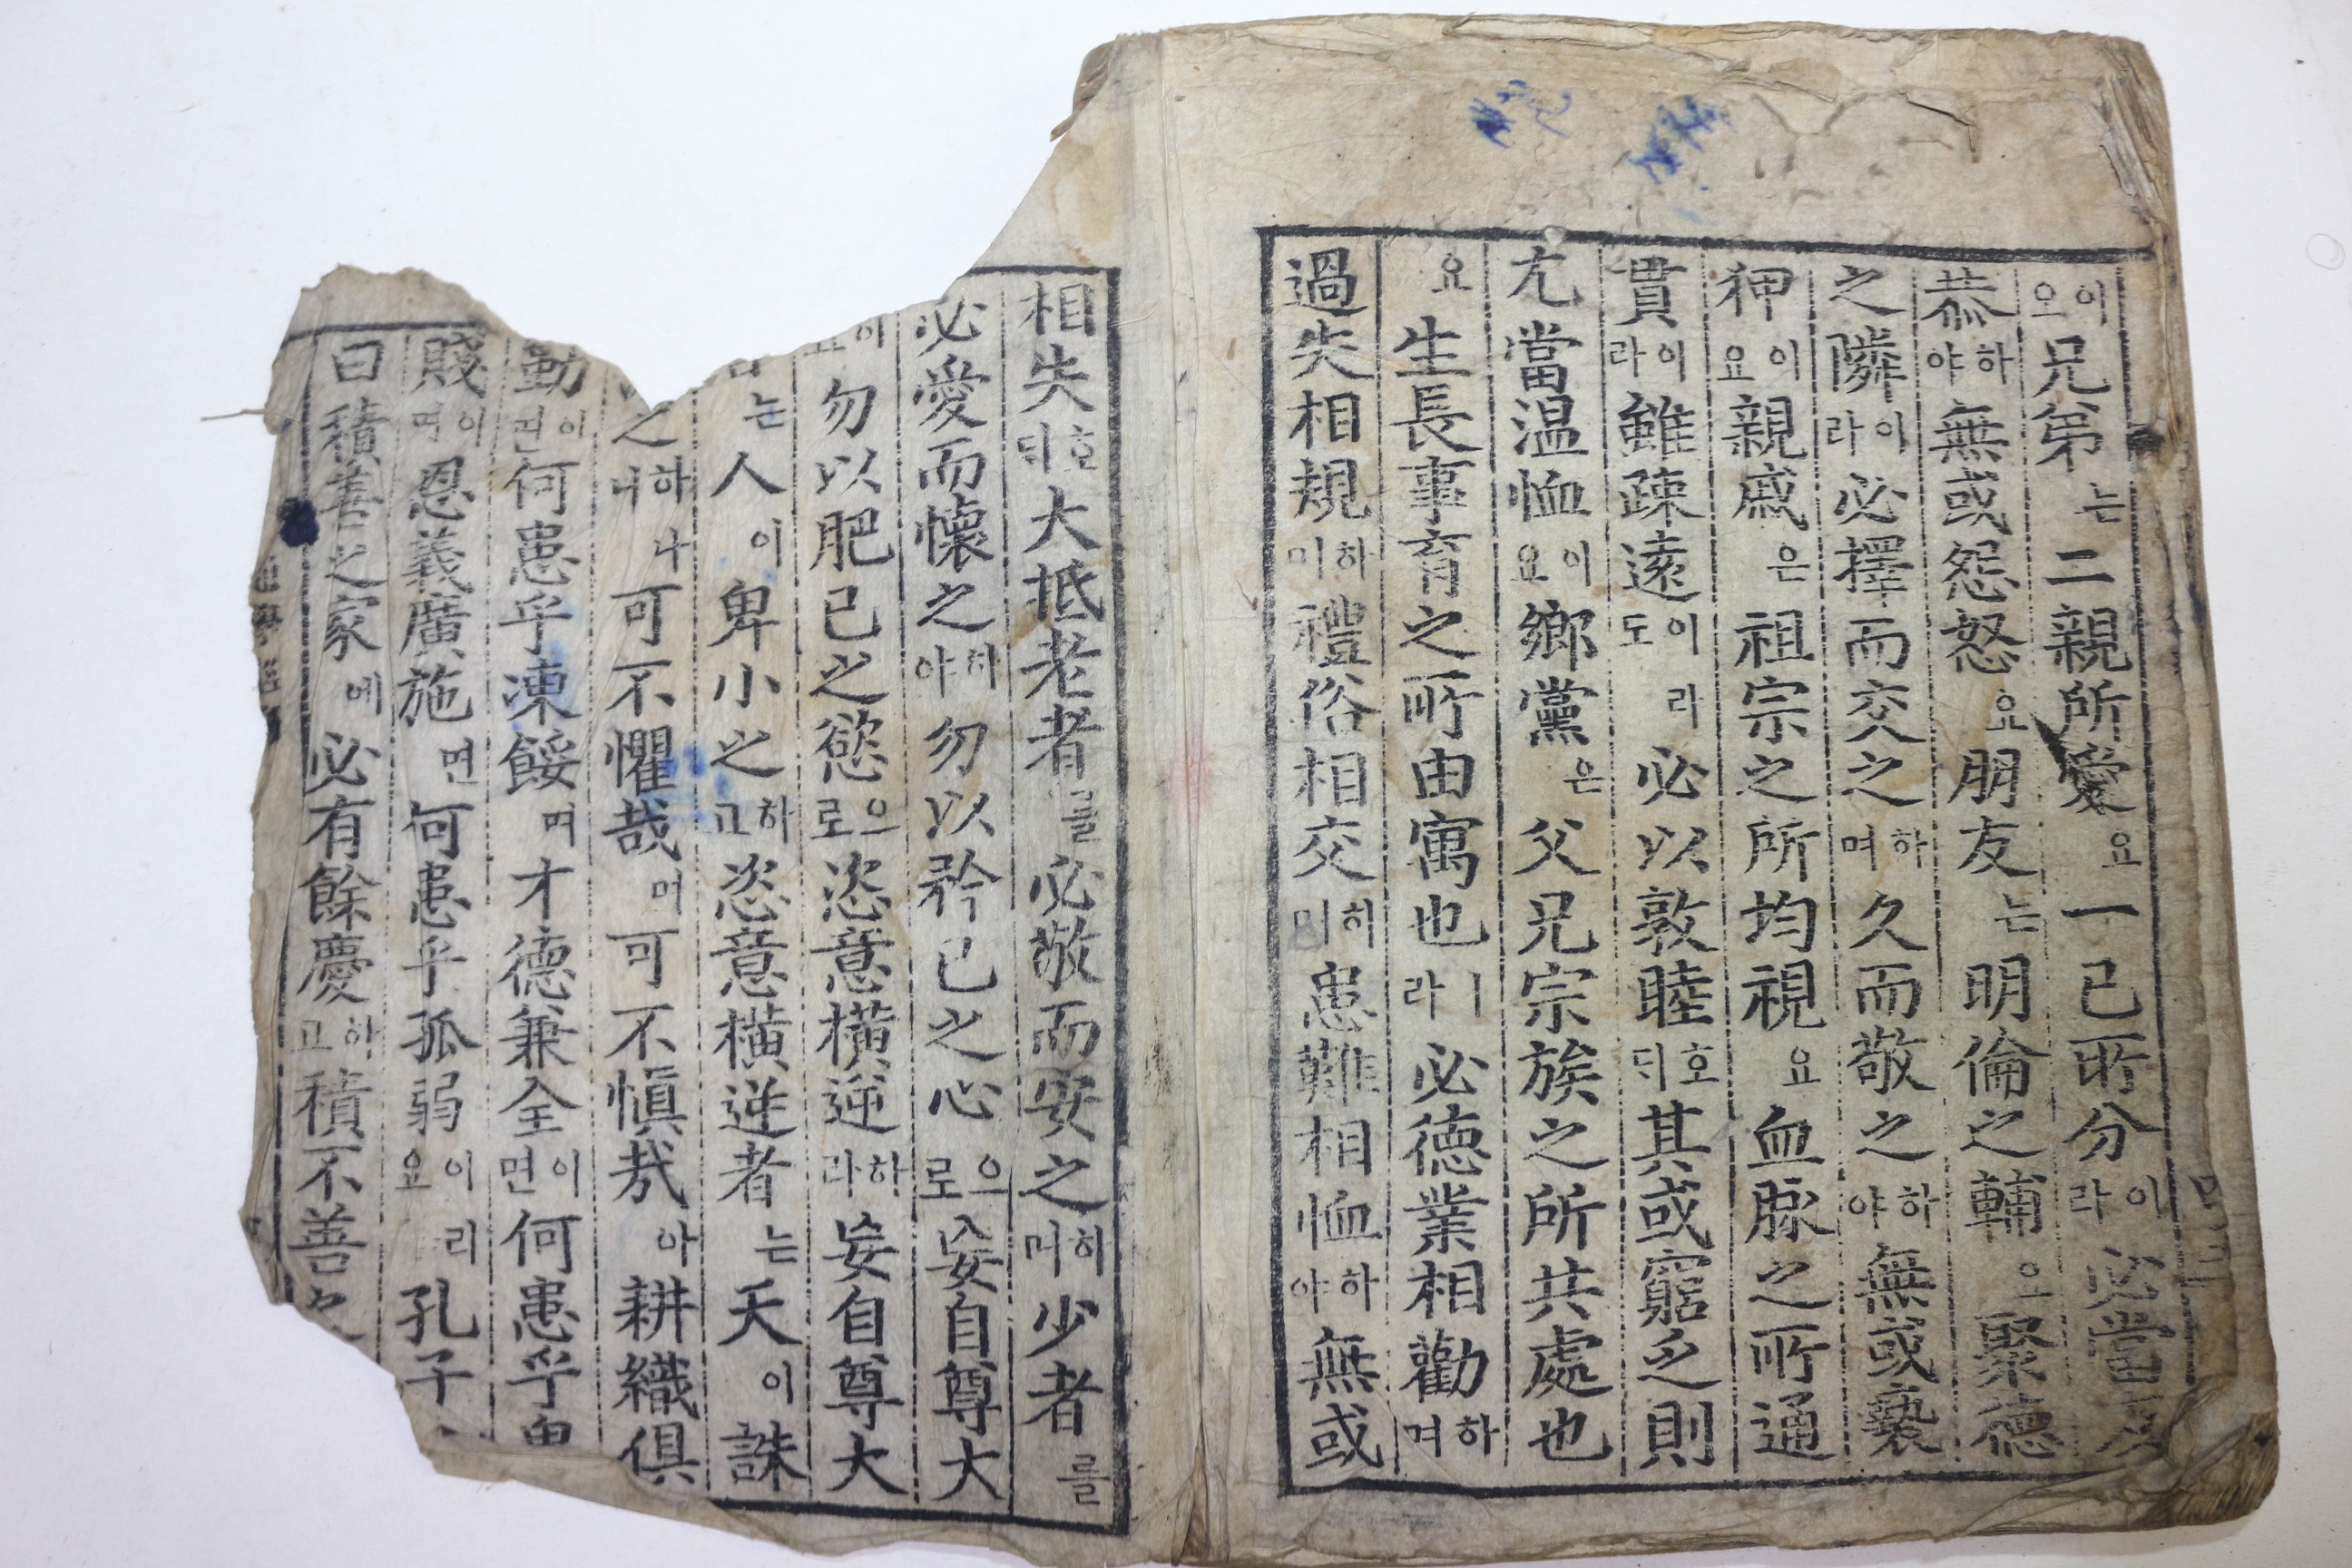 이오兄弟는二親所愛요一已所分이라必當
恭하야無或怨怒요朋友는明倫之輔오聚德
之隣이라必擇而交之하며久而敬之하야無或褻
狎이요親戚은祖宗之所均視요血脉之所通
貫이라雖疎遠이도이라必以敦睦호되其或窮乏則
尤當温恤이요鄉黨은父兄宗族之所共處也
요生長事育之所由寓也ㅣ라必德業相勸하며
過失相規하미禮俗相交히미患難相恤하야無或
相失호되大抵老者를必敬而安之히며少者를
必愛而懷之하야勿以矜已之心으로妄自尊大
이요勿以肥已之慾으로恣意橫逆하라妄自尊大
는人이卑小之하고恣意橫逆者는天이誅
之하니나可不懼哉며可不愼哉아耕織俱
勤이면何患乎凍餒며才德兼全이면何患乎卑
賤이며恩義廣施면何患乎孤弱이요리孔子
曰積善之家에必有餘慶하고積不善之